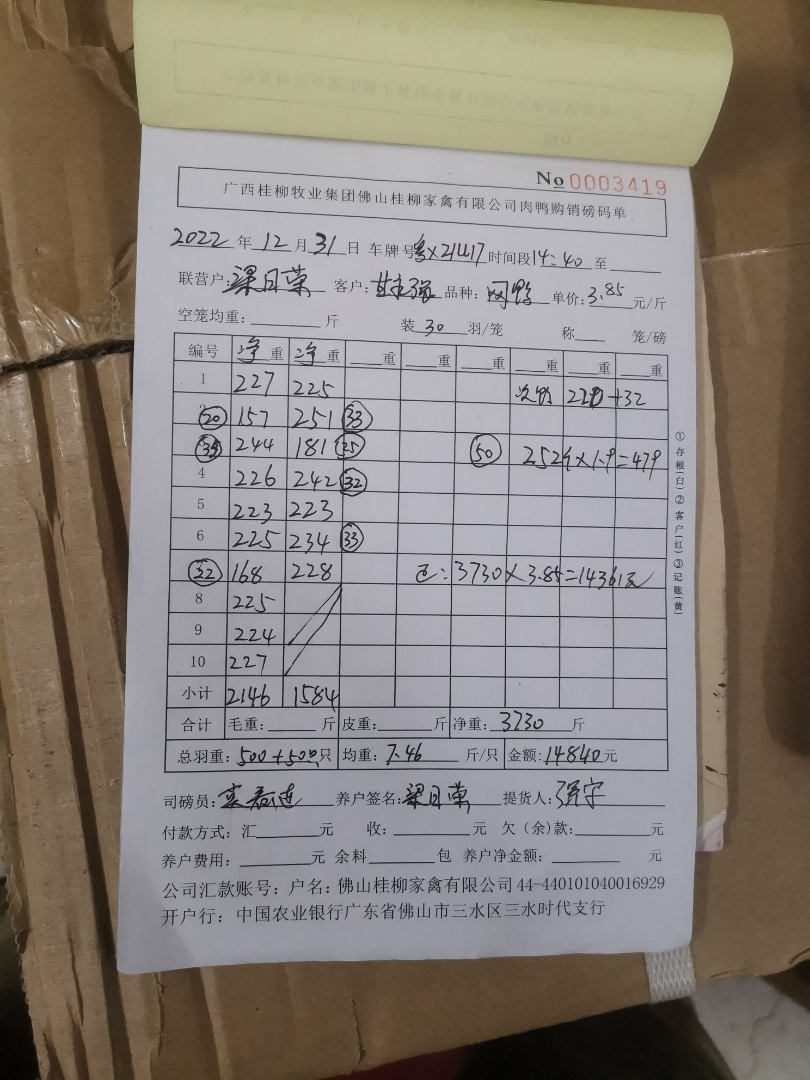 No 0003419
广西桂柳牧业集团佛山桂柳家禽有限公司肉鸭购销磅码单
2022 年 12 月 31 日 车牌号 粤X21417 时间段 14:40 至
联营户: 梁日荣 客户: 强 品种: 网鸭 单价: 3.85 元/斤
空笼均重: 斤 装 30 羽/笼 称 笼/磅
编号 净重 净重 重 重 重 重 重 重
1 227 225 次鸭 220+32
⑳ 157 251 ㉝
244 181 ㉕ ㊿ 252斤×1.9=479
4 226 242 ㉜
5 223 223
6 225 234 ㉝
㉜ 168 228 正:3730×3.85=14361元
8 225
9 224
10 227
小计 2146 1584
合计 毛重: 斤 皮重: 斤 净重: 3730 斤
总羽重: 500+50只 均重: 7.46 斤/只 金额: 14840元
司磅员: 养户签名: 梁日荣 提货人:
付款方式: 汇 元 收: 元 欠(余)款: 元
养户费用: 元 余料 包 养户净金额: 元
公司汇款账号: 户名: 佛山桂柳家禽有限公司 44-440101040016929
开户行: 中国农业银行广东省佛山市三水区三水时代支行
①存根(白)②客户(红)③记账(黄)